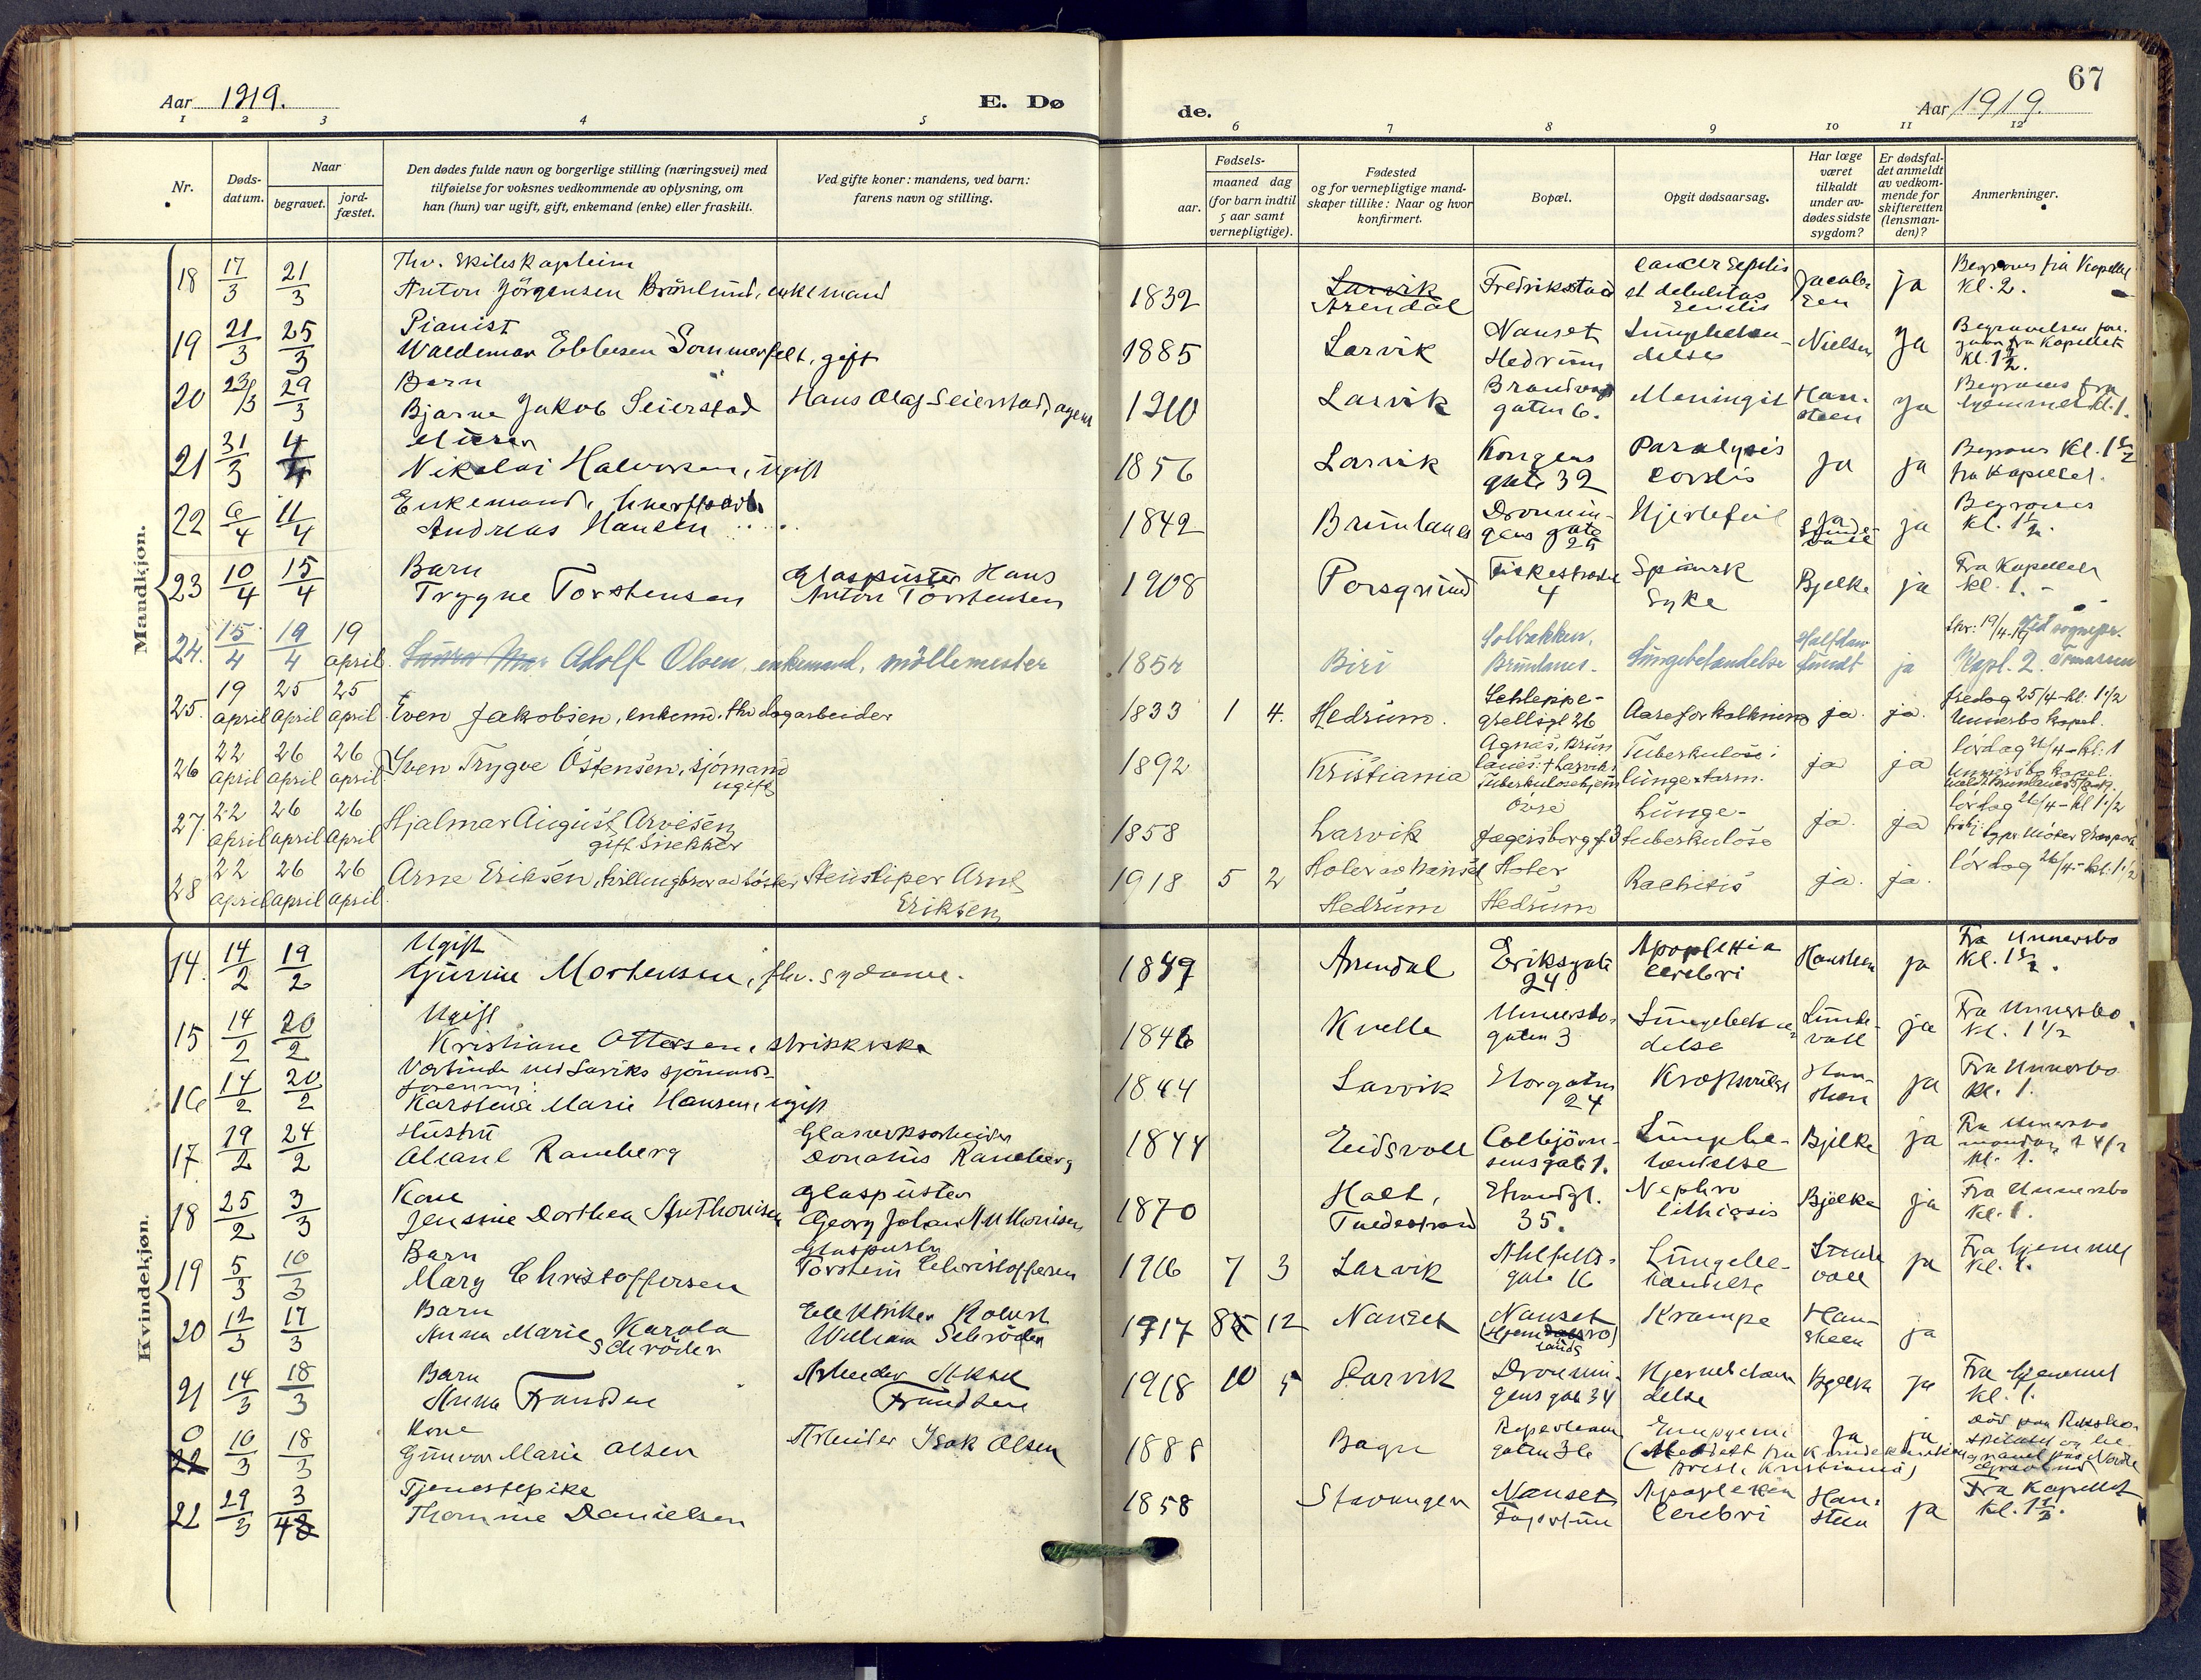 67
Aar 1919.
E. Dø
de.
Aar 1919.
1 2 3 4 5 6 7 8 9 10 11 12
Nr.
Døds-
datum.
Naar
begravet.
jord-
fæstet.
Den dødes fulde navn og borgerlige stilling (næringsvei) med
tilføielse for voksnes vedkommende av oplysning, om
han (hun) var ugift, gift, enkemand (enke) eller fraskilt.
Ved gifte koner: mandens, ved barn:
farens navn og stilling.
Fødsels-
aar.
maaned dag
(for barn indtil
5 aar samt
vernepligtige).
Fødested
og for vernepligtige mand-
skaper tillike: Naar og hvor
konfirmert.
Bopæl.
Opgit dødsaarsag.
Har læge
været
tilkaldt
under av-
dødes sidste
sygdom?
Er dødsfal-
det anmeldt
av vedkom-
mende for
skifteretten
(lensman-
den)?
Anmerkninger.
Mandkjøn.
18 17/3 21/3
Anton Jörgensen Brönlund, enkemand
1832 Larvik Arendal Fredrikstad ja
Kl. 2.
19 21/3 25/3 Pianist
Waldemar Ebbesen Sommerfelt, gift
1885 Larvik Nanset Hedrum Nielsen ja
Kl. 1 1/2.
20 23/3 29/3 Barn
Bjarne Jakob Seierstad Hans Olaf Seierstad, agent
1910 Larvik gaten 6. Meningit Hansteen ja
Begraves fra hjemmet kl. 1.
21 31/3 4/4 Murer
Nikolai Halvorsen, ugift
1856 Larvik Kongens gate 32 Paralysis cordis ja ja
fra Kapellet.
22 6/4 11/4 Enkemand,
Andreas Hansen
1842 Brunlanes Dronningens gate 25 Hjertefeil ja ja
Begraves kl. 1 1/2.
23 10/4 15/4 Barn
Trygve Torstensen Glaspuster Hans Anton Torstensen
1908 Porsgrund 4 Spansk Syke Bjelke ja
Fra Kapellet kl. 1.
24. 15/4 19/4 19 april. Adolf Olsen, enkemand, möllemester
1854 Biri Solbakken, Brunlanes. Lungebetændelse Halfdan Sundt ja
Kapl. 2.
25. 19 april 25 april 25 april. Even Jakobsen, enkem. fhv dagarbeider
1833 1 4. Hedrum. Schleppegrellsgt 26 Aareforkalkning ja. ja.
fredag 25/4 - kl. 1 1/2 Unnersbo kapel.
26 22 april 26 april 26 april Sven Trygve Östensen, sjömand ugift
1892 Kristiania Agnes, Brunlanes: † Larviks Tuberkulosehjem Tuberkulose: lunge + tarm. ja ja
lördag 26/4 - kl. 1
27. 22 april 26 april 26 april Hjalmar August Arvesen gift Snekker
1858 Larvik Övre Jegersborg g 3 Lungetuberkulose ja. ja
lördag 26/4 - kl 1 1/2
28 22 april 26 april 26 april Arne Eriksen, Stensliper Arnt Eriksen
1918 5 2 Holer av Nanset Hedrum Holer Hedrum Rachitis ja. ja.
lördag 26/4 - kl. 1 1/2
Kvindekjøn.
14. 14/2 19/2 Ugift
Gurine Mortensen, fhv. sydame.
1849 Arendal Eriksgate 24 Apoplexia cerebri Hansteen ja
Fra Unnersbo Kl. 1 1/2.
15 14/2 20/2 Ugift
Kristiane Ottersen,
1846 Kvelle Unnersbogaten 3 Lungebetændelse Lundevall ja
Fra Unnersbo. Kl. 1 1/2
16 14/2 20/2 Værtinde ved Larviks sjömandsforening:
Karstine Marie Hansen, ugift
1844 Larvik Storgaten 24 Hansteen ja
Fra Unnersbo Kl. 1.
17 19/2 24/2 Hustru Glasverksarbeider
Ramberg Donatus Ramberg
1844 Eidsvoll Colbjörnsensgate 1. Lungebetændelse Bjelke ja
Fra Unnersbo mandag 24/2 kl. 1.
18 25/2 3/3 Kone Glaspuster
Jensine Dorthea Anthonisen Georg Johan Anthonisen
1870 Holt, Tvedestrand Strandgt. 35. Nephrolithiasis Bjelke ja
Fra Unnersbo Kl. 1.
19 5/3 10/3 Barn Glaspuster
Mary Christoffersen Torstein Christoffersen
1916 7 3 Larvik gate 16 Lungebetændelse Lundevall ja
Fra hjemmet Kl. 1.
20 12/3 17/3 Barn Elektriker Robert
Anna Marie Karola Schröder William Schröder
1917 8 12 Nanset Nanset Krampe Hansteen ja
21 14/3 18/3 Barn Arbeider Aksel
Anna Frandsen Frandsen
1918 10 5 Larvik Dronningens gate 34 Hjernebetændelse Bjelke ja
Fra hjemmet Kl. 1.
0 22 10/3 18/3 Kone
Gunvor Marie Olsen Arbeider Isak Olsen
1888 Bagn Reperbanegaten 36 ja ja
22 29/3 3/4 Tjenestepike
Thomine Danielsen
1858 Stavanger Nanset Apoplexia Cerebri Hansteen ja
Fra Kapellet Kl. 1 1/2.